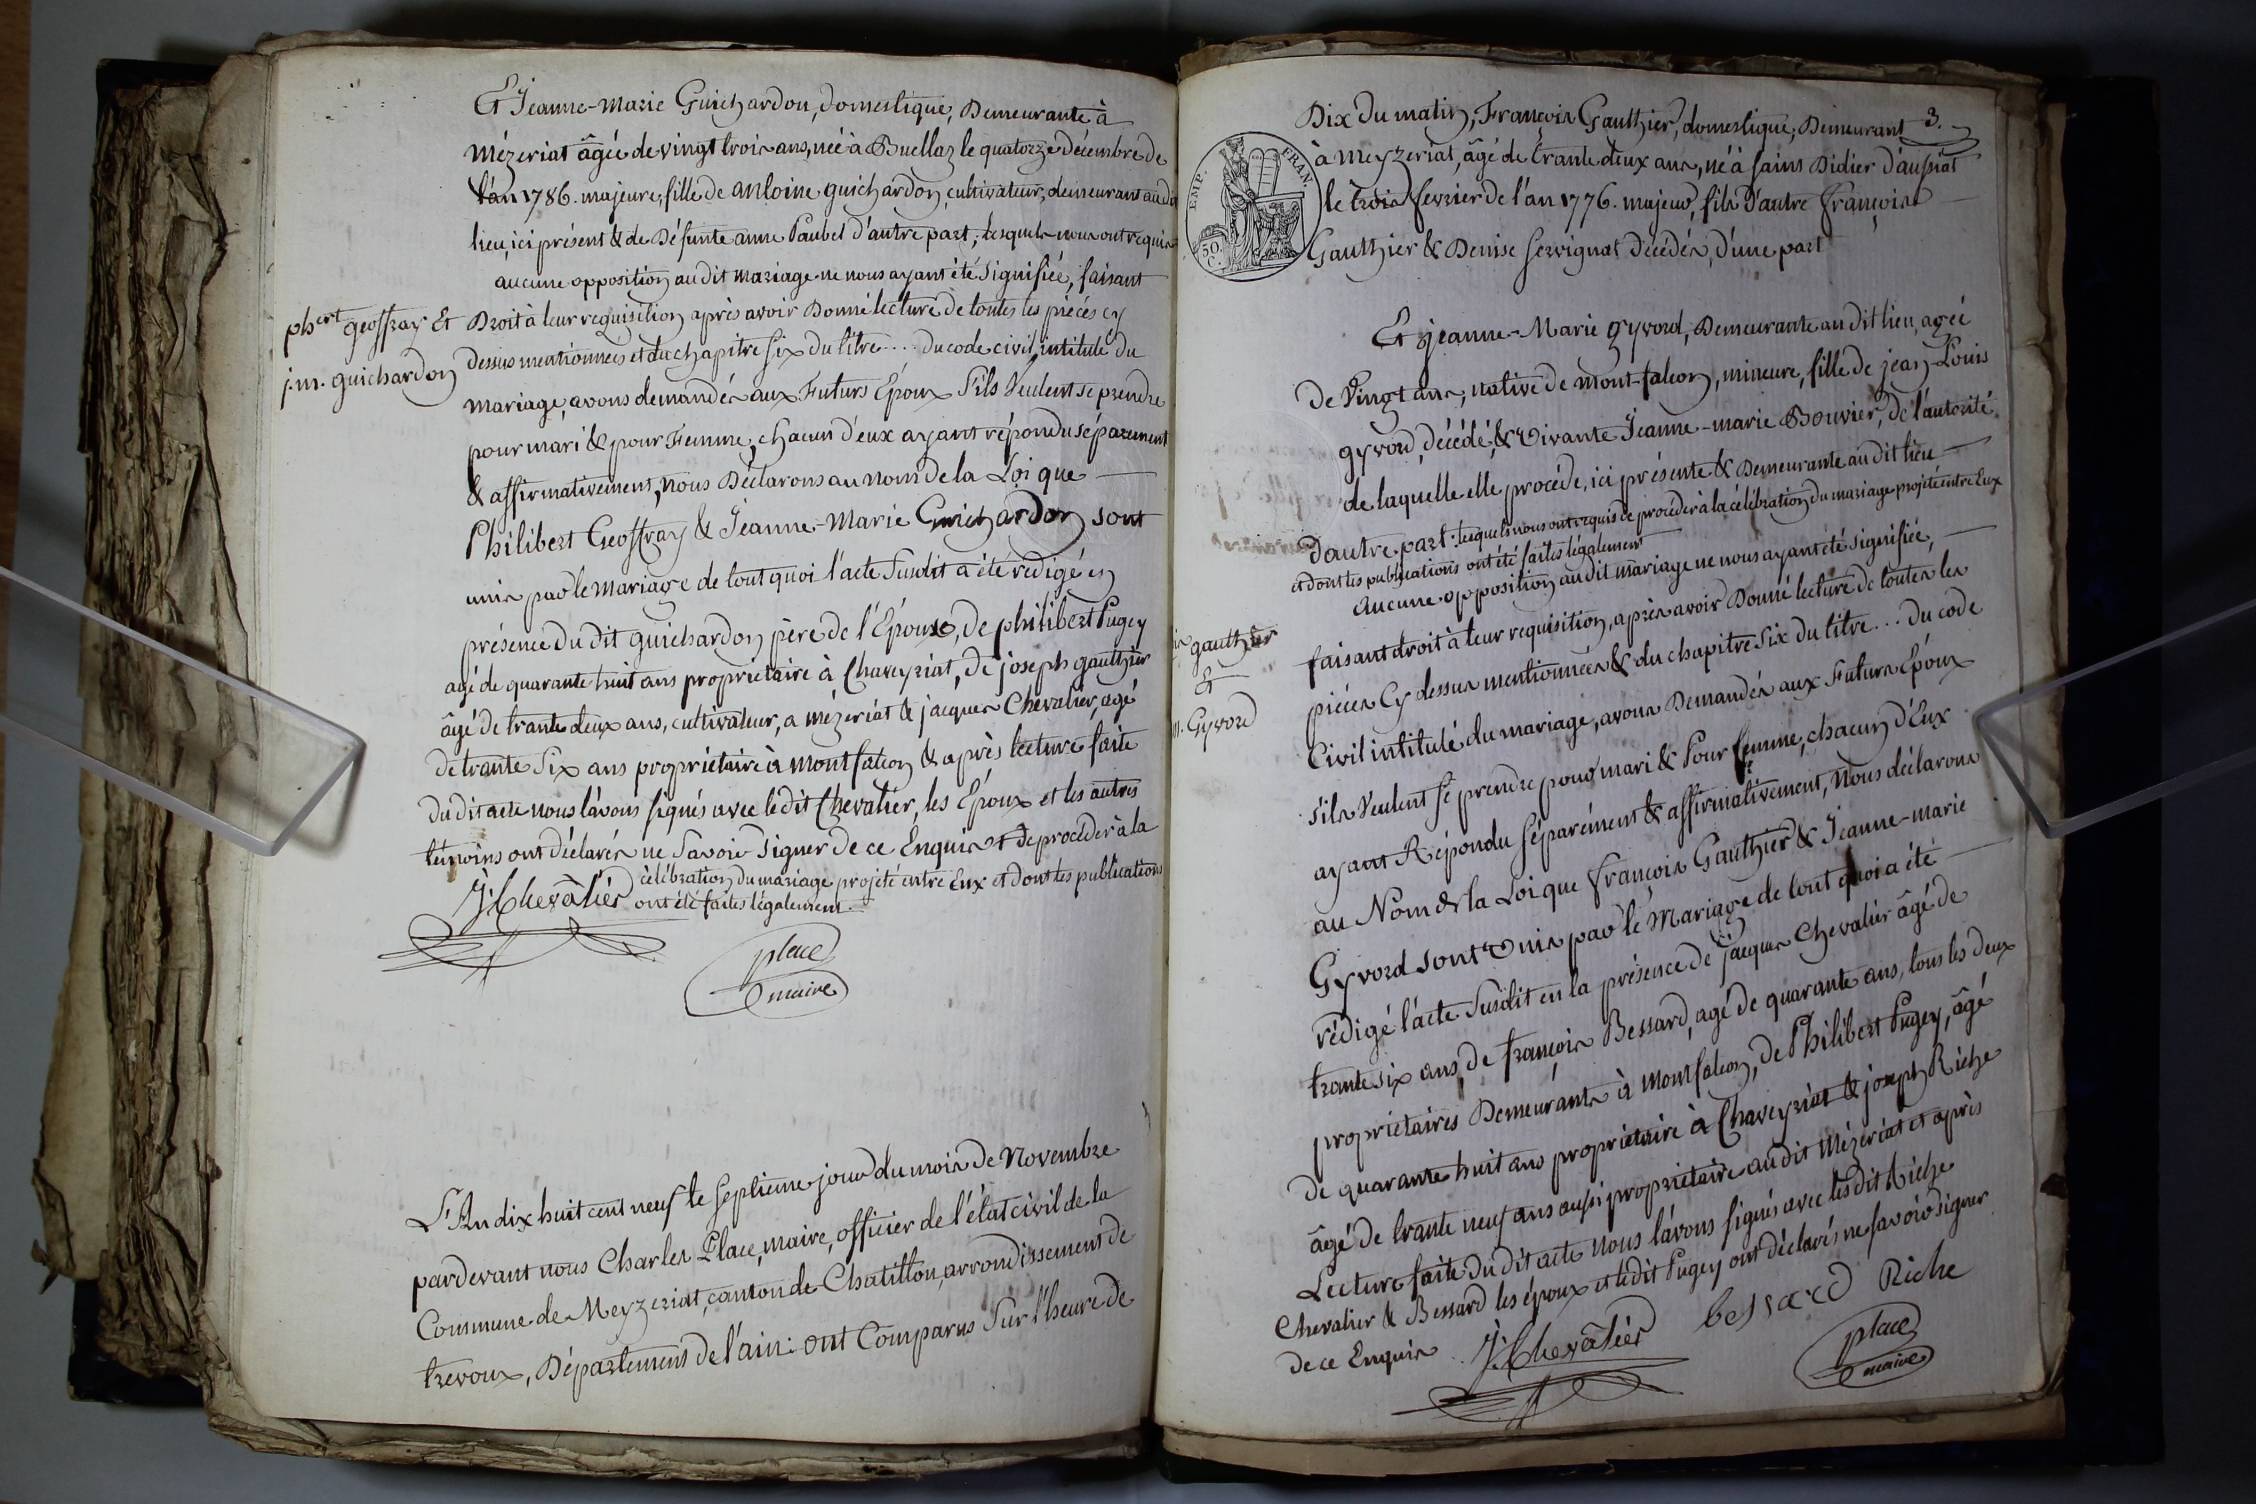 Et Jeanne-Marie Guichardon, domestique, Demeurante à
Mézeriat âgée de vingt trois ans, née à Buellaz le quatorze décembre de
l'an 1786. majeure, fille de antoine guichardon, cultivateur, demeurant au dit
lieu, ici présent & de Défunte anne Paubel d'autre part; lesquels nous ont requis
aucune opposition au dit mariage ne nous ayant été signifiée, faisant
phert geoffray Et
j.m. guichardon
Droit à leur requisition après avoir Donné lecture de toutes les piécés cy
dessus mentionnées et du chapitre six du titre .... du code civil, intitulé du
mariage, avons demandés aux Futurs Époux s'ils Veulent se prendre
pour mari & pour Femme, chacun d'eux ayant répondu séparement
& affirmativement, nous Déclarons au nom de la Loi que
Philibert Geoffray & Jeanne-Marie Guichardon sont
unis par le Mariage de tout quoi l'acte susdit a été rédigé en
présence du dit guichardon père de l'Épouse, de philibert Pugey
agé de quarante huit ans proprietaire à Chaveyriat, de joseph gauthier
âgé de trante deux ans, cultivateur, a mézeriat & jacques Chevalier, agé
de trante six ans propriétaire à montfalcon & après lecture faite
du dit acte nous l'avons signés avec le dit Chevalier, les Époux et les autres
temoins ont déclarés ne Savoir Signer de ce Enquis et de procéder à la
célébration du mariage projeté entre Eux et dont les publications
ont été faites légalement.
J. Chevâliér
place
maire
L'An dix huit cent neuf le septieme jour du mois de Novembre
pardevant nous Charles Place, maire, officier de l'état civil de la
Commune de Meyzeriat, canton de Chatillon, arrondissement de
trevoux, Département de l'ain: ont Comparus Sur l'heure de
3.
Dix du matin, François Gauthier, domestique, Demeurant
à Meyzeriat, âgé de trante deux ans, né à saint Didier d'aussiat
le trois fevrier de l'an 1776. majeur, fils d'autre François
Gauthier & Denise Servignat décédés, d'une part
EMP. FRAN.
50. C.
Et jeanne-Marie gyvord, Demeurante au dit lieu, agée
de Vingt ans, native de mont-falcon, mineure, fille de jean-Louis
gyvord, décédé, & vivante Jeanne-marie Bouvier, de l'autorité
de laquelle elle procéde, ici présente & Demeurante au dit lieu
d'autre part. lesquels nous ont requis de procéder à la célébration du mariage projeté entre Eux
et dont les publications ont été faites légalement
Aucune opposition au dit mariage ne nous ayant été signifiée,
gauthier
Et
m. Gyvord
faisant droit à leur requisition, après avoir Donné lecture de toutes les
piéces Cy dessus mentionnées & du chapitre Six du titre ... du code
Civil intitulé du mariage, avons Demandés aux Futurs Époux
s'ils Veulent se prendre pour mari & Pour femme, chacun d'Eux
ayant Répondu séparément & affirmativement, Nous déclarons
au Nom de la Loi que françois Gauthier & Jeanne-marie
Gyvord sont Unis par le Mariage de tout quoi a été
rédigé l'acte Susdit en la présence de jacques Chevalier âgé de
trante six ans, de françois Bessard, agé de quarante ans, tous les deux
propriétaires Demeurants à montfalcon, de Philibert Pugey, âgé
de quarante huit ans propriétaire à Chaveyriat & joseph Riche
âgé de trante neuf ans aussi propriétaire au dit Mézériat et après
Lecture faite du dit acte nous l'avons signés avec lesdit Riche
Chevalier & Bessard les époux et ledit Pugey ont déclarés ne savoir signer
de ce Enquis
J. Chevâliér
bessard
Riche
place
maire